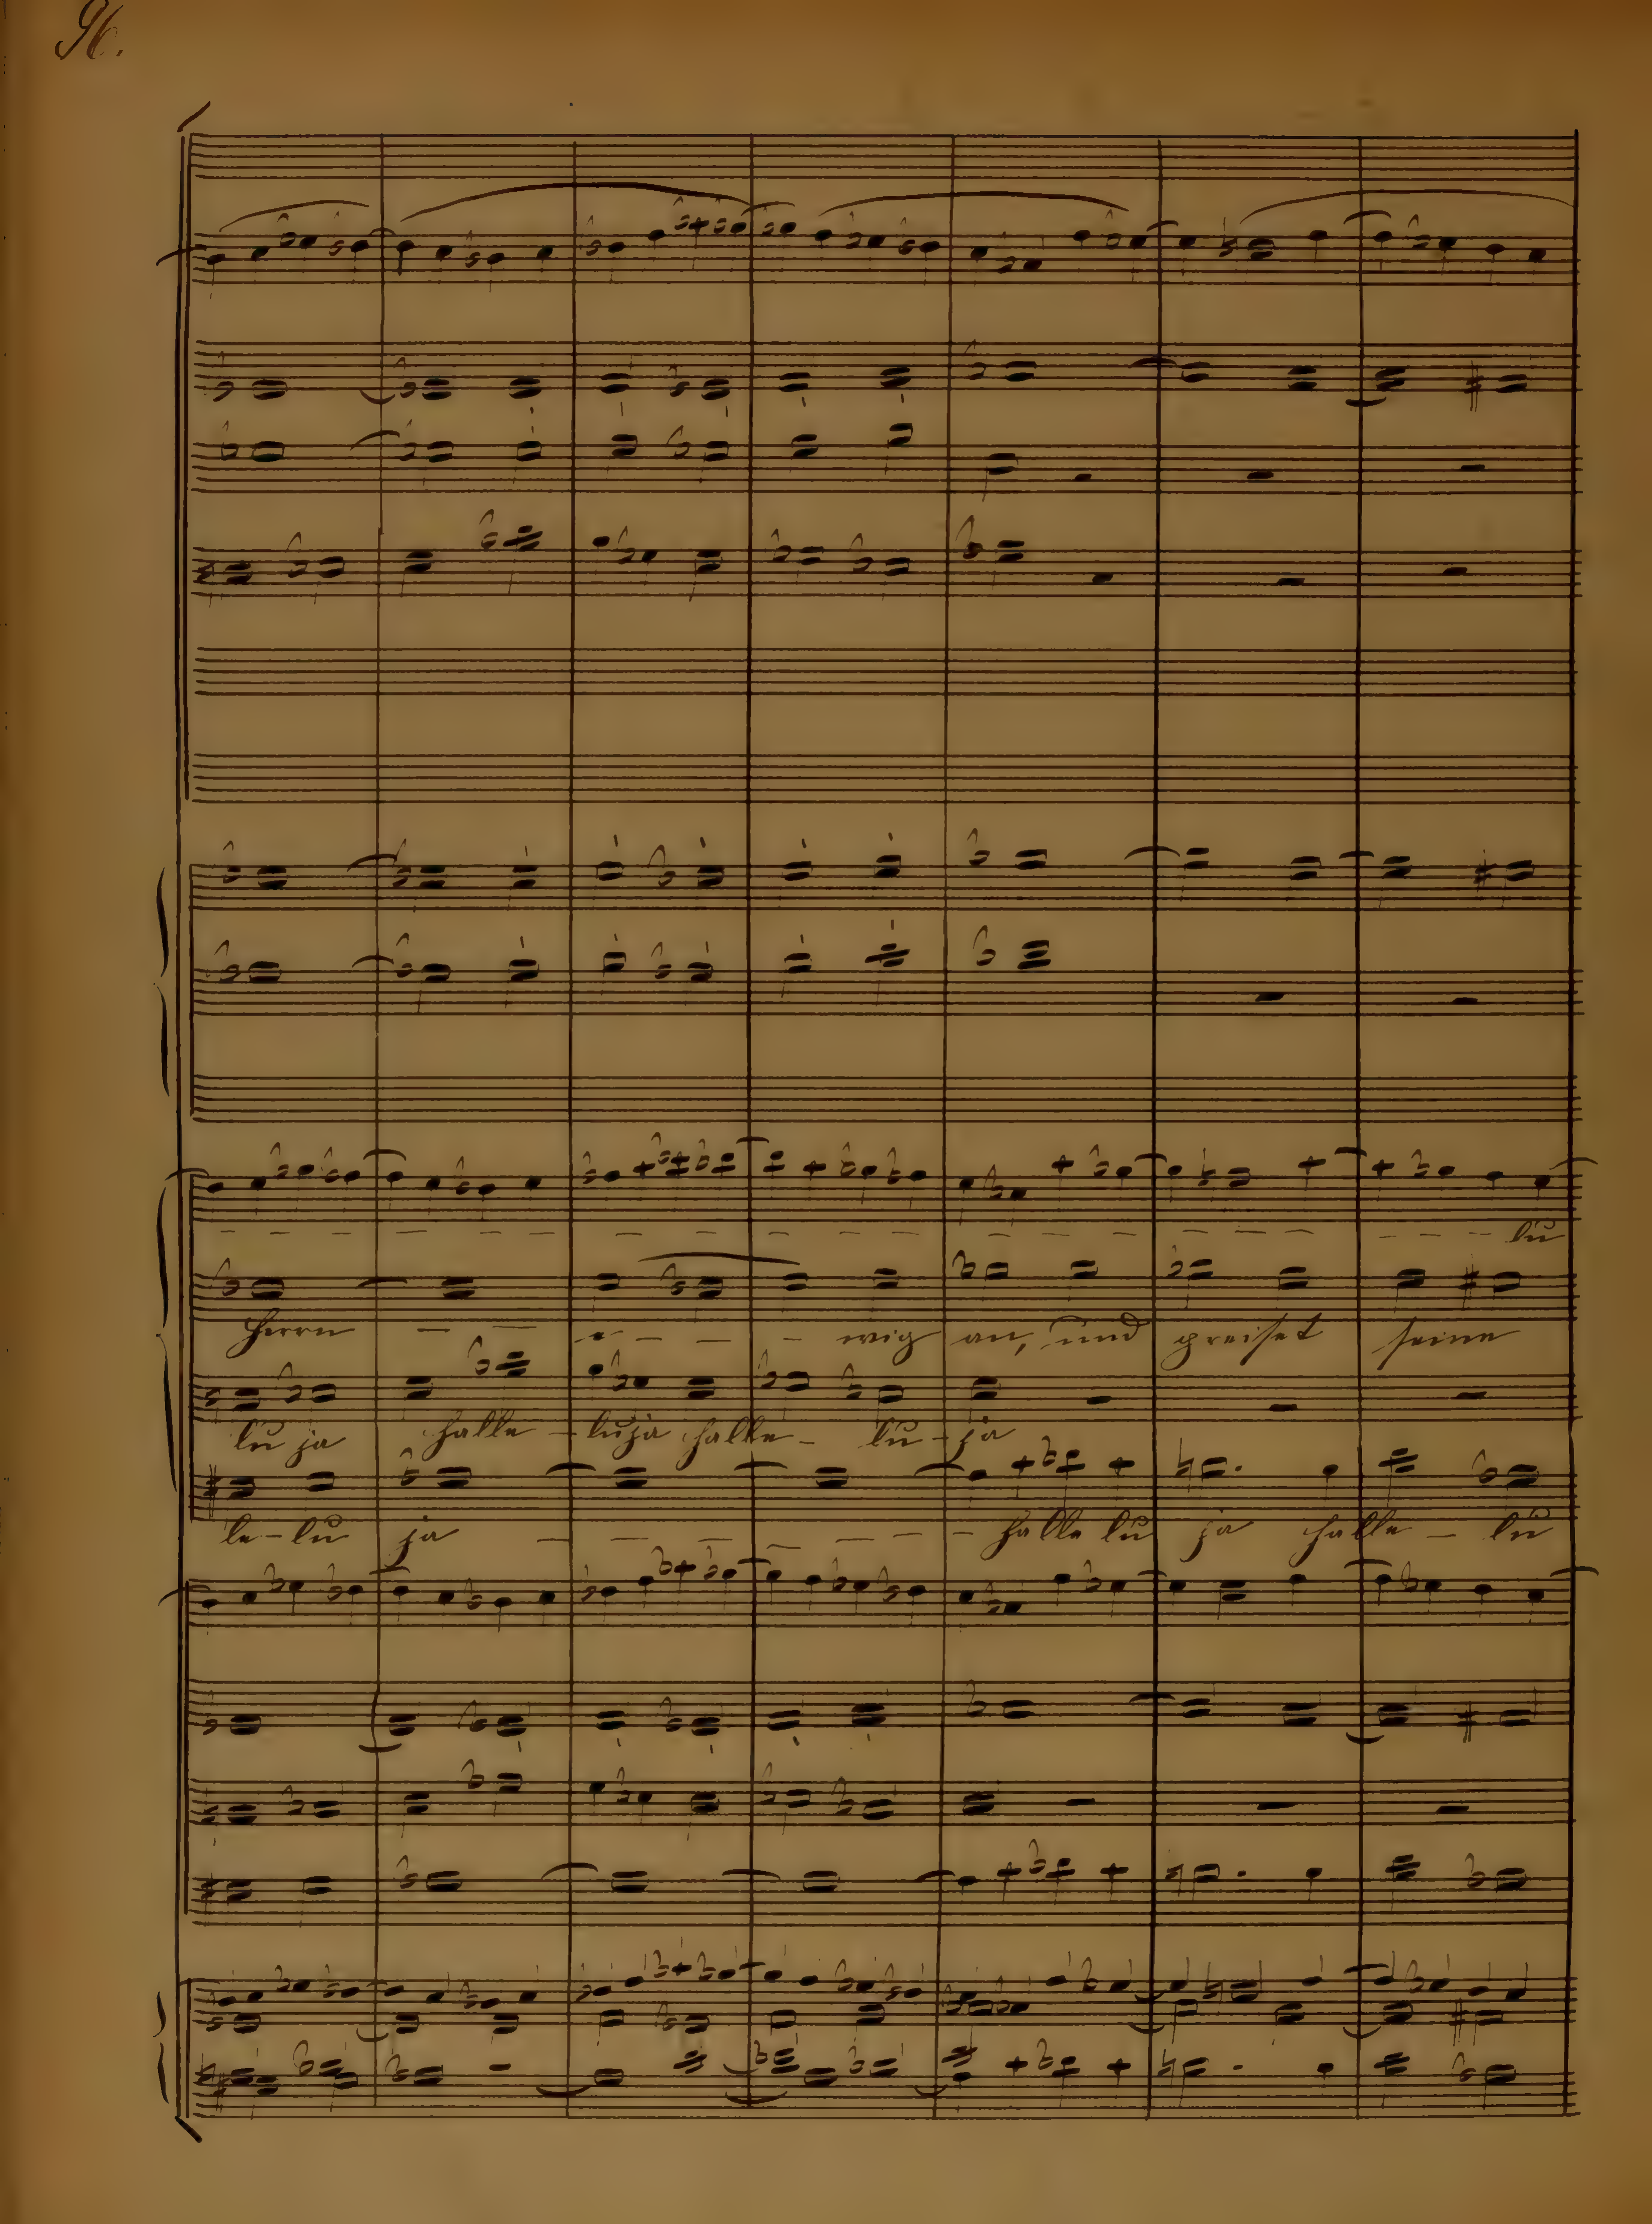 96.
lu
Herrn - - - - - - wig an, und preiset seine
lu ja halle - luja halle - lu - ja
le - lu ja - - - - - - halle lu ja halle - lu